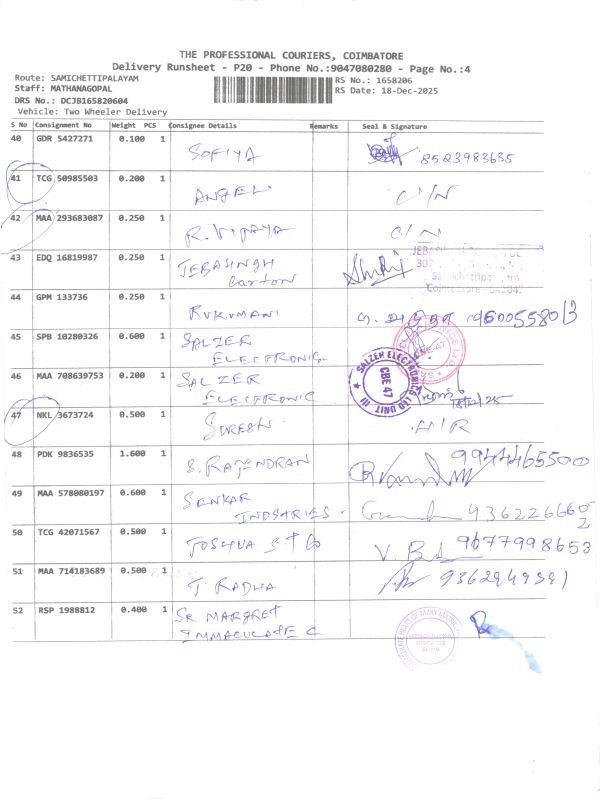 THE PROFESSIONAL COURIERS, COIMBATORE
Delivery Runsheet - P20 - Phone No.:9047080280 - Page No.:4
Route: SAMICHETTIPALAYAM
Staff: MATHANAGOPAL
DRS No.: DCJB165820604
Vehicle: Two Wheeler Delivery
RS No.: 1658206
RS Date: 18-Dec-2025
S No Consignment No Weight PCS Consignee Details Remarks Seal & Signature
40 GDR 5427271 0.100 1 SOFIYA 8523983635
41 TCG 50985503 0.200 1 ANGEL C/N
42 MAA 293683087 0.250 1 R. VIJAYA C/N
43 EDQ 16819987 0.250 1 JEBASINGH
Carton
44 GPM 133736 0.250 1 RUKUMANI
45 SPB 10280326 0.600 1 SALZER
ELECTRONIC
SALZER ELECTRONICS LTD UNIT III
CBE 47
46 MAA 708639753 0.200 1 SALZER
ELECTRONIC
18/12/25
47 NKL 3673724 0.500 1 SURESH H/R
48 PDK 9836535 1.600 1 S. RAJENDRAN 9944465500
49 MAA 578080197 0.600 1 SENKAR
INDSTRIES.
50 TCG 42071567 0.500 1 JOSHUA S T Co 9677998653
51 MAA 714183689 0.500 1 T. RADHA
52 RSP 1988812 0.400 1 SR MARGRET
IMMACULATE C